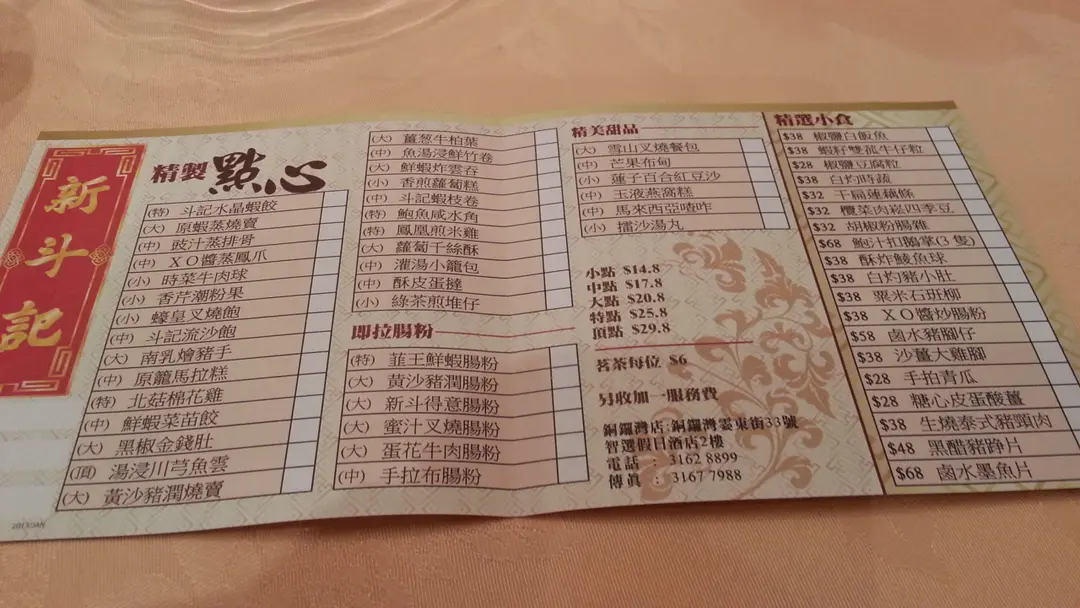 新斗記
精製點心
(特) 斗記水晶蝦餃
(大) 原蝦蒸燒賣
(中) 豉汁蒸排骨
(中) XO醬蒸鳳爪
(小) 時菜牛肉球
(小) 香芹潮粉果
(小) 蠔皇叉燒飽
(中) 斗記流沙飽
(大) 南乳燴豬手
(中) 原籠馬拉糕
(特) 北菇棉花雞
(中) 鮮蝦菜苗餃
(大) 黑椒金錢肚
(頂) 湯浸川芎魚雲
(大) 黃沙豬潤燒賣
2013/JAN
(大) 薑葱牛柏葉
(中) 魚湯浸鮮竹卷
(大) 鮮蝦炸雲吞
(小) 香煎蘿蔔糕
(中) 斗記蝦枝卷
(特) 鮑魚咸水角
(特) 鳳凰煎米雞
(大) 蘿蔔千絲酥
(中) 灌湯小籠包
(中) 酥皮蛋撻
(小) 綠茶煎堆仔
即拉腸粉
(特) 韮王鮮蝦腸粉
(大) 黃沙豬潤腸粉
(大) 新斗得意腸粉
(大) 蜜汁叉燒腸粉
(大) 蛋花牛肉腸粉
(中) 手拉布腸粉
精美甜品
(大) 雪山叉燒餐包
(中) 芒果布甸
(小) 蓮子百合紅豆沙
(中) 玉液燕窩糕
(中) 馬來西亞喳咋
(小) 擂沙湯丸
小點 $14.8
中點 $17.8
大點 $20.8
特點 $25.8
頂點 $29.8
茗茶每位 $6
另收加一服務費
銅鑼灣店:銅鑼灣雲東街33號
智選假日酒店2樓
電話 : 3162 8899
傳真 : 3167 7988
精選小食
$38 椒鹽白飯魚
$38 蝦籽雙菰牛仔粒
$28 椒鹽豆腐粒
$38 白灼時蔬
$32 干扁蓮藕條
$32 欖菜肉崧四季豆
$32 胡椒粉腸雜
$68 鮑汁扣鵝掌(3隻)
$38 酥炸鯪魚球
$38 白灼豬小肚
$38 粟米石斑柳
$38 XO醬炒腸粉
$58 鹵水豬腳仔
$38 沙薑大雞腳
$28 手拍青瓜
$28 糖心皮蛋酸薑
$38 生燒泰式豬頸肉
$48 黑醋豬踭片
$68 鹵水墨魚片